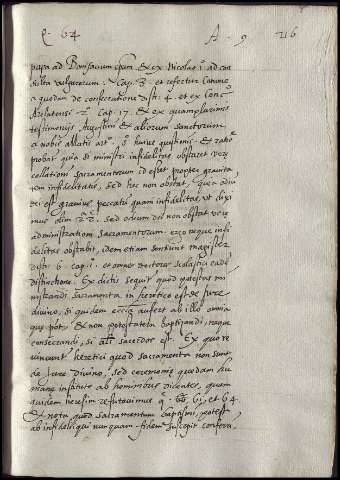 Q. 64 A. 9 216
papa ad Bonifacium ep̃um & ex Nicolao .1. ad
sulta vulgarorum . Cap. 3. et refertur
a quodam de consecratione dist. 4. et ex Conc.
Cap. 17. & ex quamplurimis
testimonijs Augustini & aliorum sanctorum
a nobis allatis art. huius questionis. &
probat quia si ministri infidelitas obstaret
collationi sacramentorum id esset propter gravita
tem infidelitatis, sed hec non obstat, quia odiũ
dei est gravius peccatũ quam infidelitas ut dixi
mus olim 2.2. sed odium dei non obstat
administrationi sacramentorum. ergo neque infi
delitas obstabit, idem etiam sentiunt magister
disti. 6. cap. 1. et omnes doctores scolastici eadẽ
distinctione. Ex dictis sequitur quod potestas mi
nistrandi sacramenta in heretico est de jure
divino, si quidem ecc.ia aufert ab illo omnia
que pot., & non potestatem baptizandi, neque
consecrandi, si sacerdos est. Ex quo re
vincunt heretici quod sacramenta non sunt
de jure divino, sed ceremonie quedam hu
mane institute ab hominibus dicentes, quam
quidem heresim refutavimus q. 60, 61, et 64.
& nota quod sacramentum baptismi, potest
ab infideli qui nunquam fidem suscepit